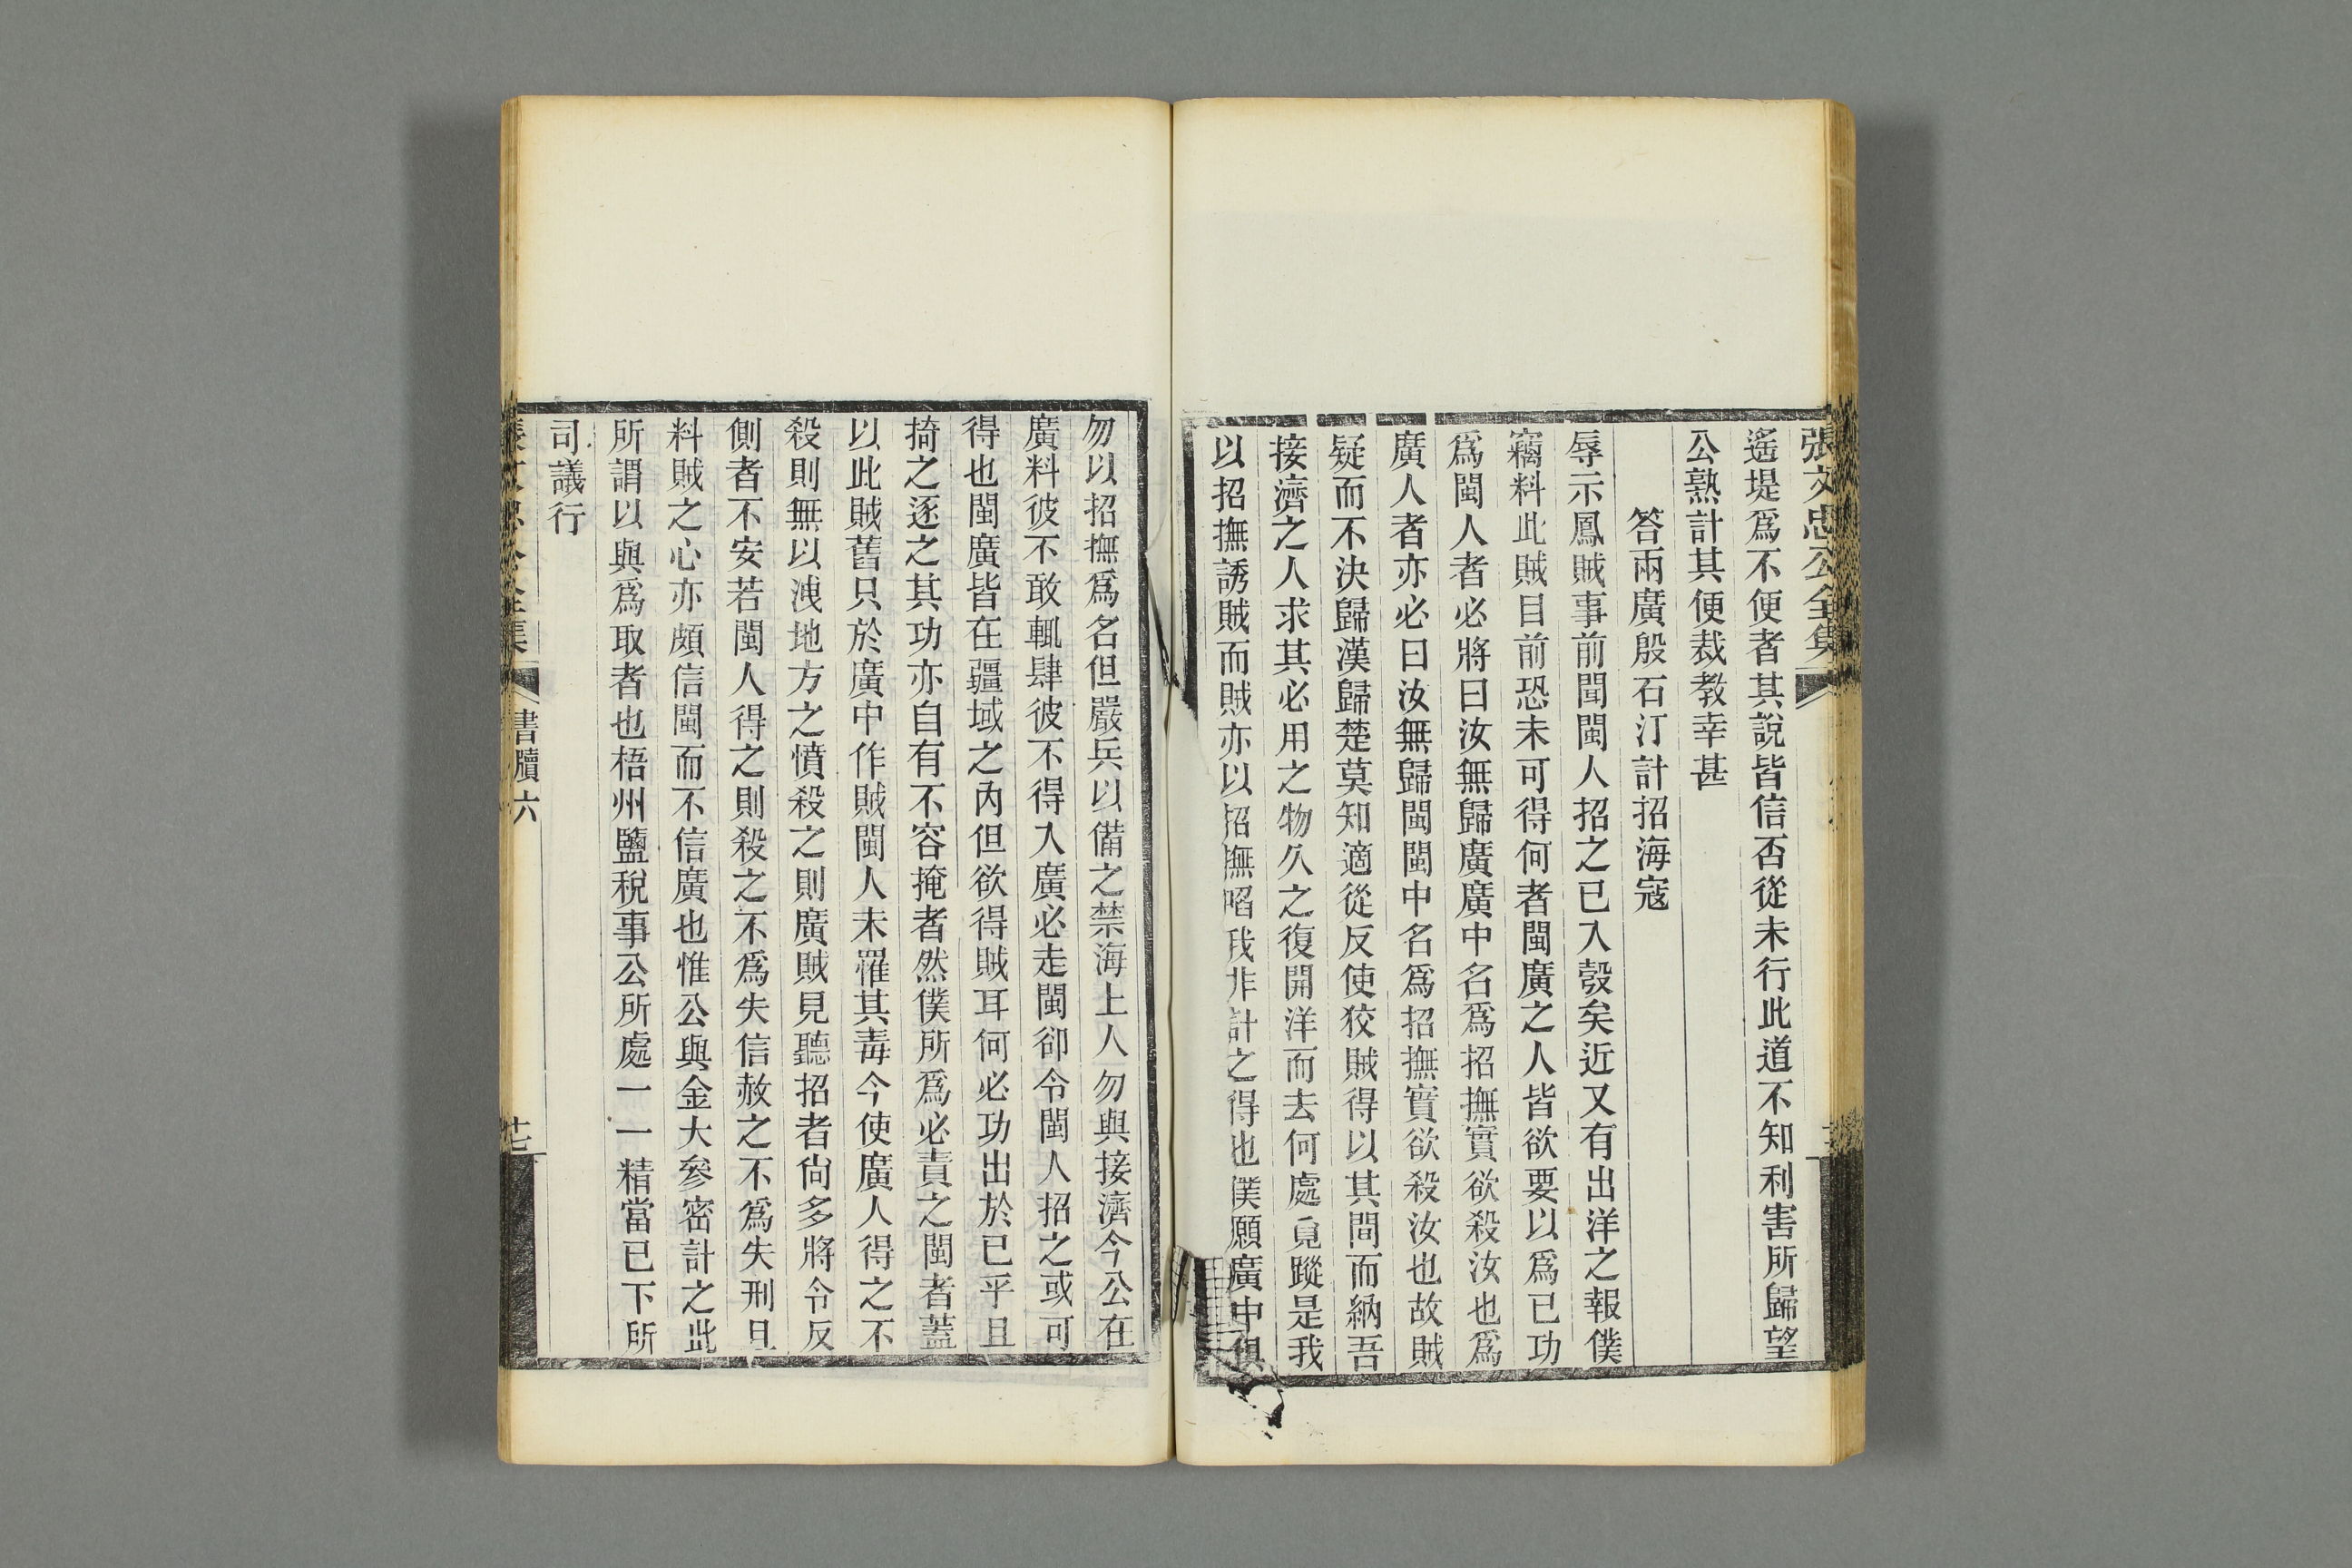 張文忠公全集
遙堤爲不便者其說皆信否從未行此道不知利害所歸望
公熟計其便裁教幸甚
答兩廣殷石汀計招海寇
辱示鳳賊事前聞閩人招之已入彀矣近又有出洋之報僕
竊料此賊目前恐未可得何者閩廣之人皆欲要以爲已功
爲閩人者必將曰汝無歸廣廣中名爲招撫實欲殺汝也爲
廣人者亦必曰汝無歸閩閩中名爲招撫實欲殺汝也故賊
疑而不決歸漢歸楚莫知適從反使狡賊得以其間而納吾
接濟之人求其必用之物久之復開洋而去何處覓蹤是我
以招撫誘賊而賊亦以招撫啗我非計之得也僕願廣中俱
勿以招撫爲名但嚴兵以備之禁海上人勿與接濟今公在
廣料彼不敢輒肆彼不得入廣必走閩卻令閩人招之或可
得也閩廣皆在疆域之內但欲得賊耳何必功出於已乎且
掎之逐之其功亦自有不容掩者然僕所爲必責之閩者蓋
以此賊舊只於廣中作賊閩人未罹其毒今使廣人得之不
殺則無以洩地方之憤殺之則廣賊見聽招者尙多將令反
側者不安若閩人得之則殺之不爲失信赦之不爲失刑且
料賊之心亦頗信閩而不信廣也惟公與金大參密計之此
所謂以與爲取者也梧州鹽稅事公所處一一精當已下所
司議行
張文忠公全集 書牘六 廿七